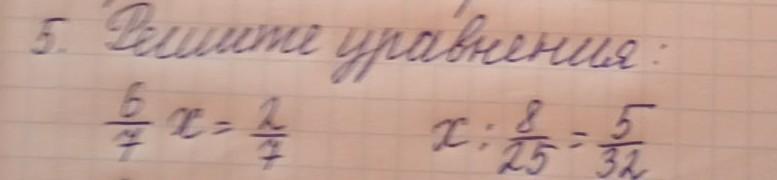 5. Решите уравнения:
6/7 x = 2/7 x : 8/25 = 5/32